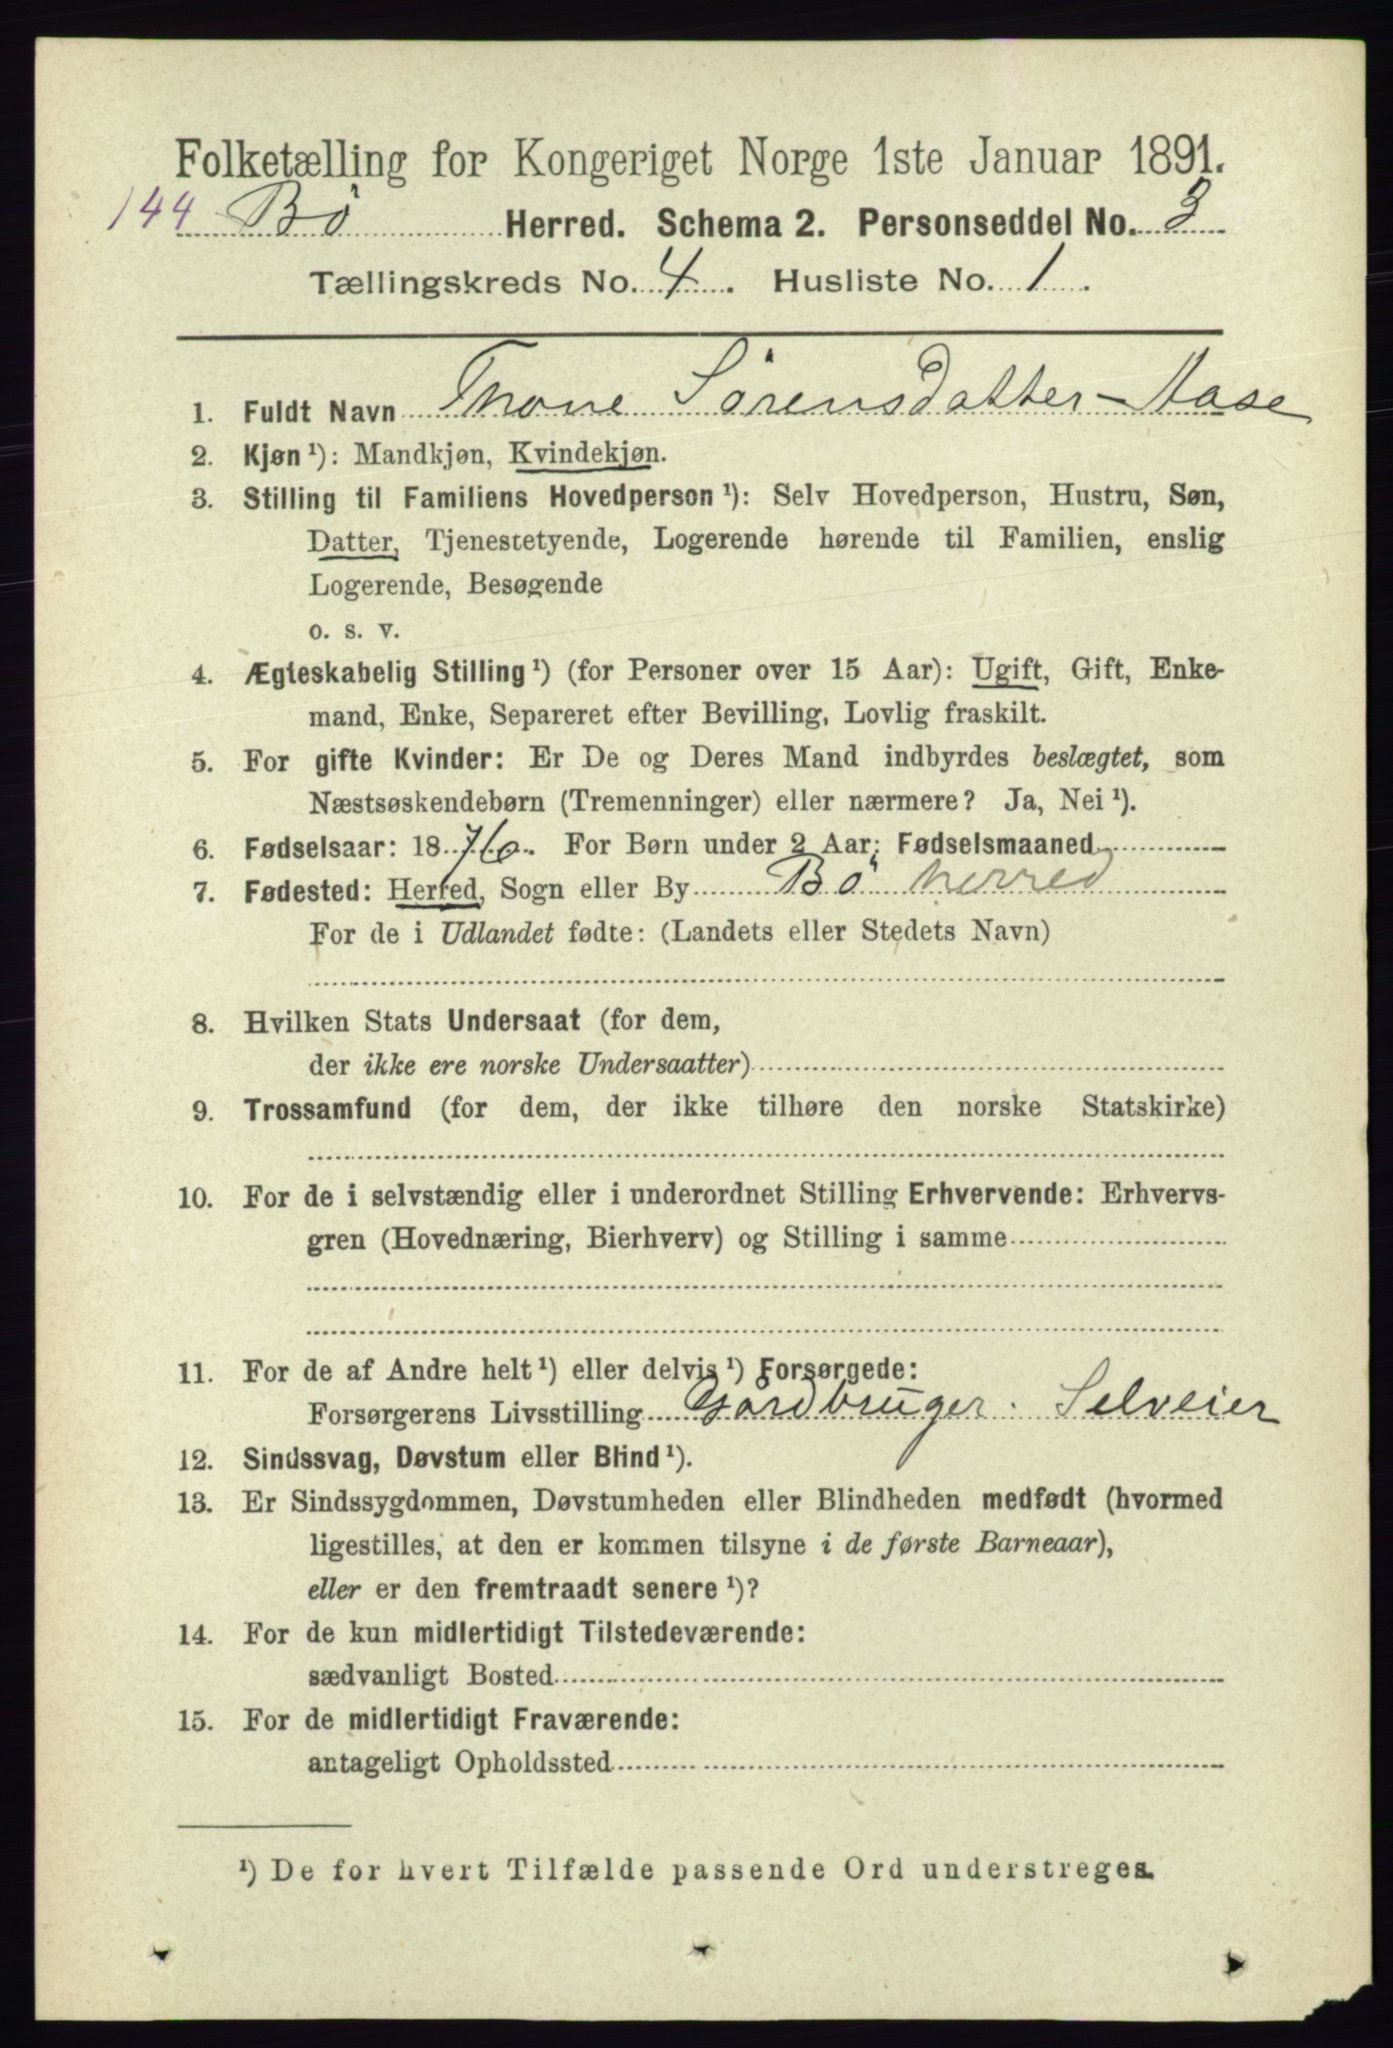 Folketælling for Kongeriget Norge 1ste Januar 1891.
144 Bø Herred. Schema 2. Personseddel No. 3
Tællingskreds No. 4. Husliste No. 1.
1. Fuldt Navn Thone Sørensdatter Aase
2. Kjøn ¹): Mandkjøn, Kvindekjøn.
3. Stilling til Familiens Hovedperson ¹): Selv Hovedperson, Hustru, Søn,
Datter, Tjenestetyende, Logerende hørende til Familien, enslig
Logerende, Besøgende
o. s. v.
4. Ægteskabelig Stilling ¹) (for Personer over 15 Aar): Ugift, Gift, Enke-
mand, Enke, Separeret efter Bevilling, Lovlig fraskilt.
5. For gifte Kvinder: Er De og Deres Mand indbyrdes beslægtet, som
Næstsøskendebørn (Tremenninger) eller nærmere? Ja, Nei ¹).
6. Fødselsaar: 1876. For Børn under 2 Aar: Fødselsmaaned
7. Fødested: Herred, Sogn eller By Bø herred
For de i Udlandet fødte: (Landets eller Stedets Navn)
8. Hvilken Stats Undersaat (for dem,
der ikke ere norske Undersaatter)
9. Trossamfund (for dem, der ikke tilhøre den norske Statskirke)
10. For de i selvstændig eller i underordnet Stilling Erhvervende: Erhvervs-
gren (Hovednæring, Bierhverv) og Stilling i samme
11. For de af Andre helt ¹) eller delvis ¹) Forsørgede:
Forsørgerens Livsstilling Gårdbruger. Selveier
12. Sindssvag, Døvstum eller Blind ¹).
13. Er Sindssygdommen, Døvstumheden eller Blindheden medfødt (hvormed
ligestilles, at den er kommen tilsyne i de første Barneaar),
eller er den fremtraadt senere ¹)?
14. For de kun midlertidigt Tilstedeværende:
sædvanligt Bosted
15. For de midlertidigt Fraværende:
antageligt Opholdssted
¹) De for hvert Tilfælde passende Ord understreges.